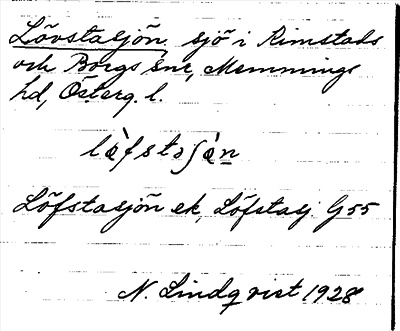 Lövstasjön, sjö i Rimstads
och Borgs snr, Memmings
hd, Österg. l.
lò̤fstaʃò̤n
Löfstasjön ek, Löfstasj. G 55
N. Lindqvist 1928